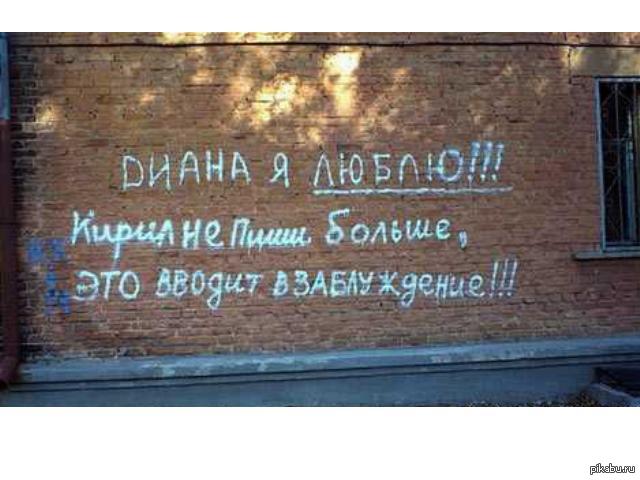 ДИАНА Я ЛЮБЛЮ!!!
Кирил не пиши больше,
ЭТО вводит в ЗАБЛУждение!!!
pikabu.ru